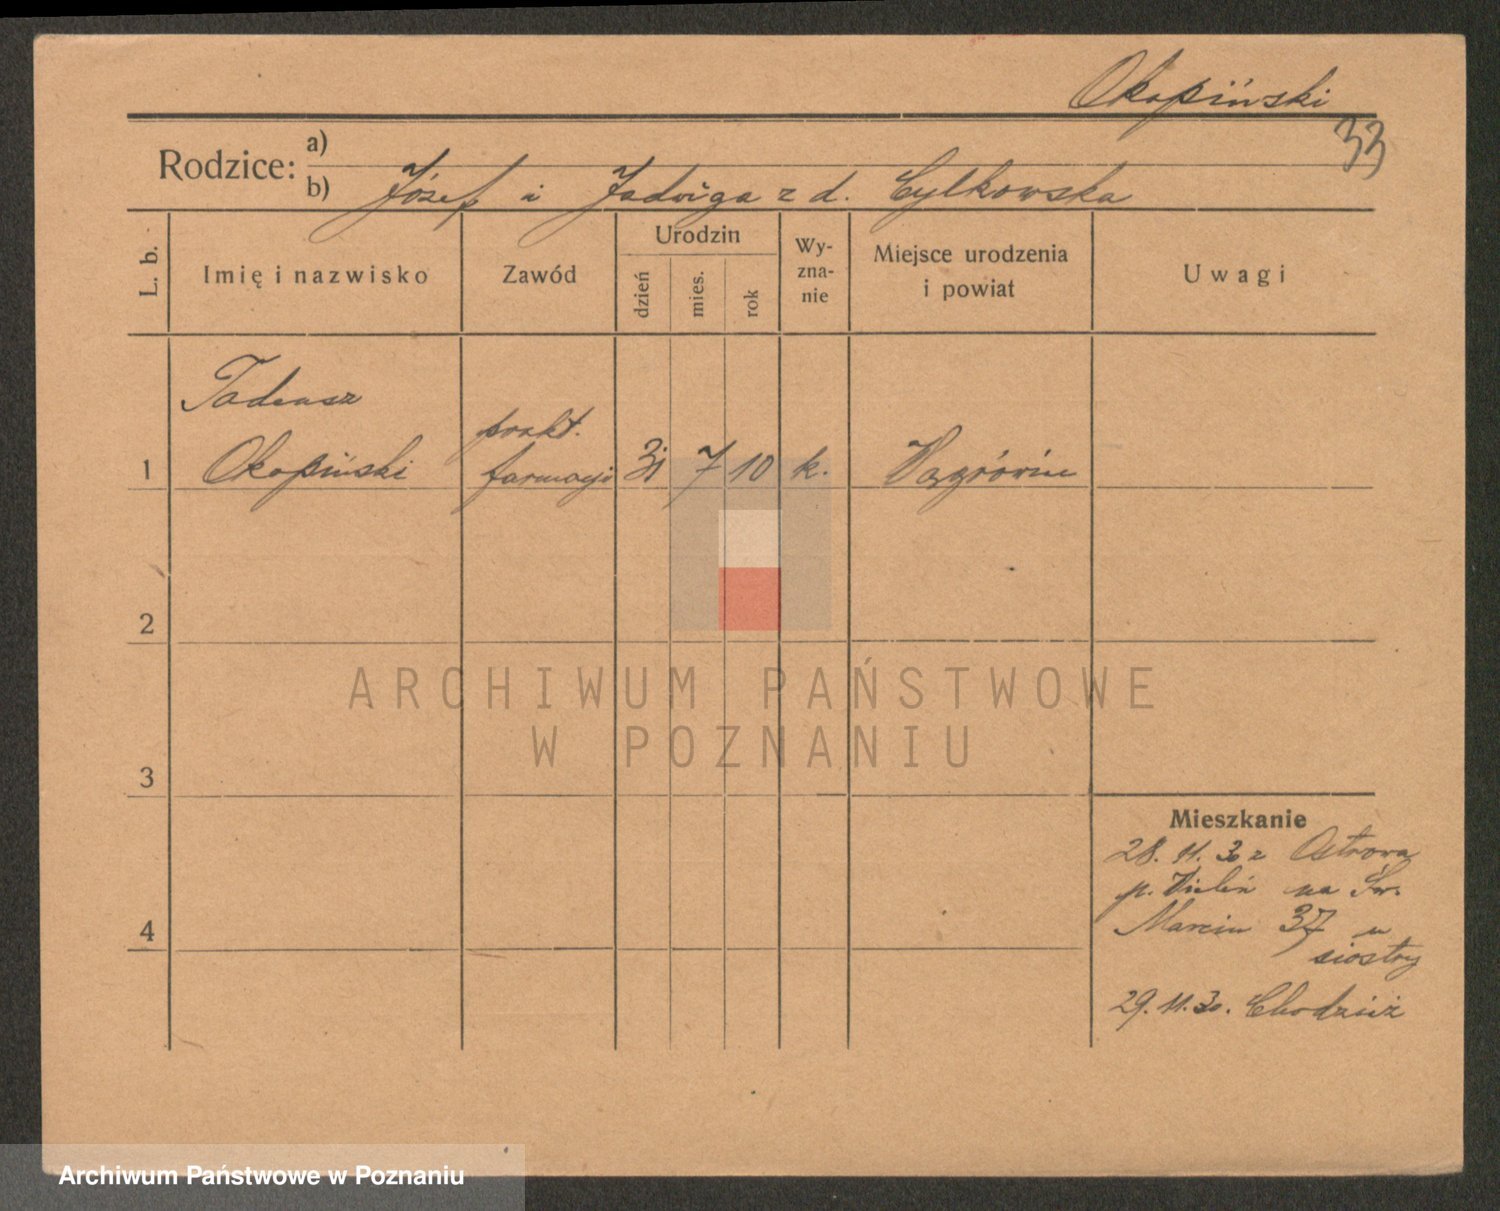 Okopiński
33
Rodzice: a)
b) Józef i Jadwiga z d. Cylkowska
L. b.
Imię i nazwisko
Zawód
Urodzin
dzień
mies.
rok
Wy-
zna-
nie
Miejsce urodzenia
i powiat
Uwagi
Tadeusz
prakt.
1 Okopiński farmacji 31 7 10 k. Wągrówiec
2
ARCHIWUM PAŃSTWOWE
W POZNANIU
3
Mieszkanie
28. 11. 30 z Ostrowa
p. Wieleń na Św.
4
Marcin 37 u
siostry
29. 11. 30. Chodzież
Archiwum Państwowe w Poznaniu